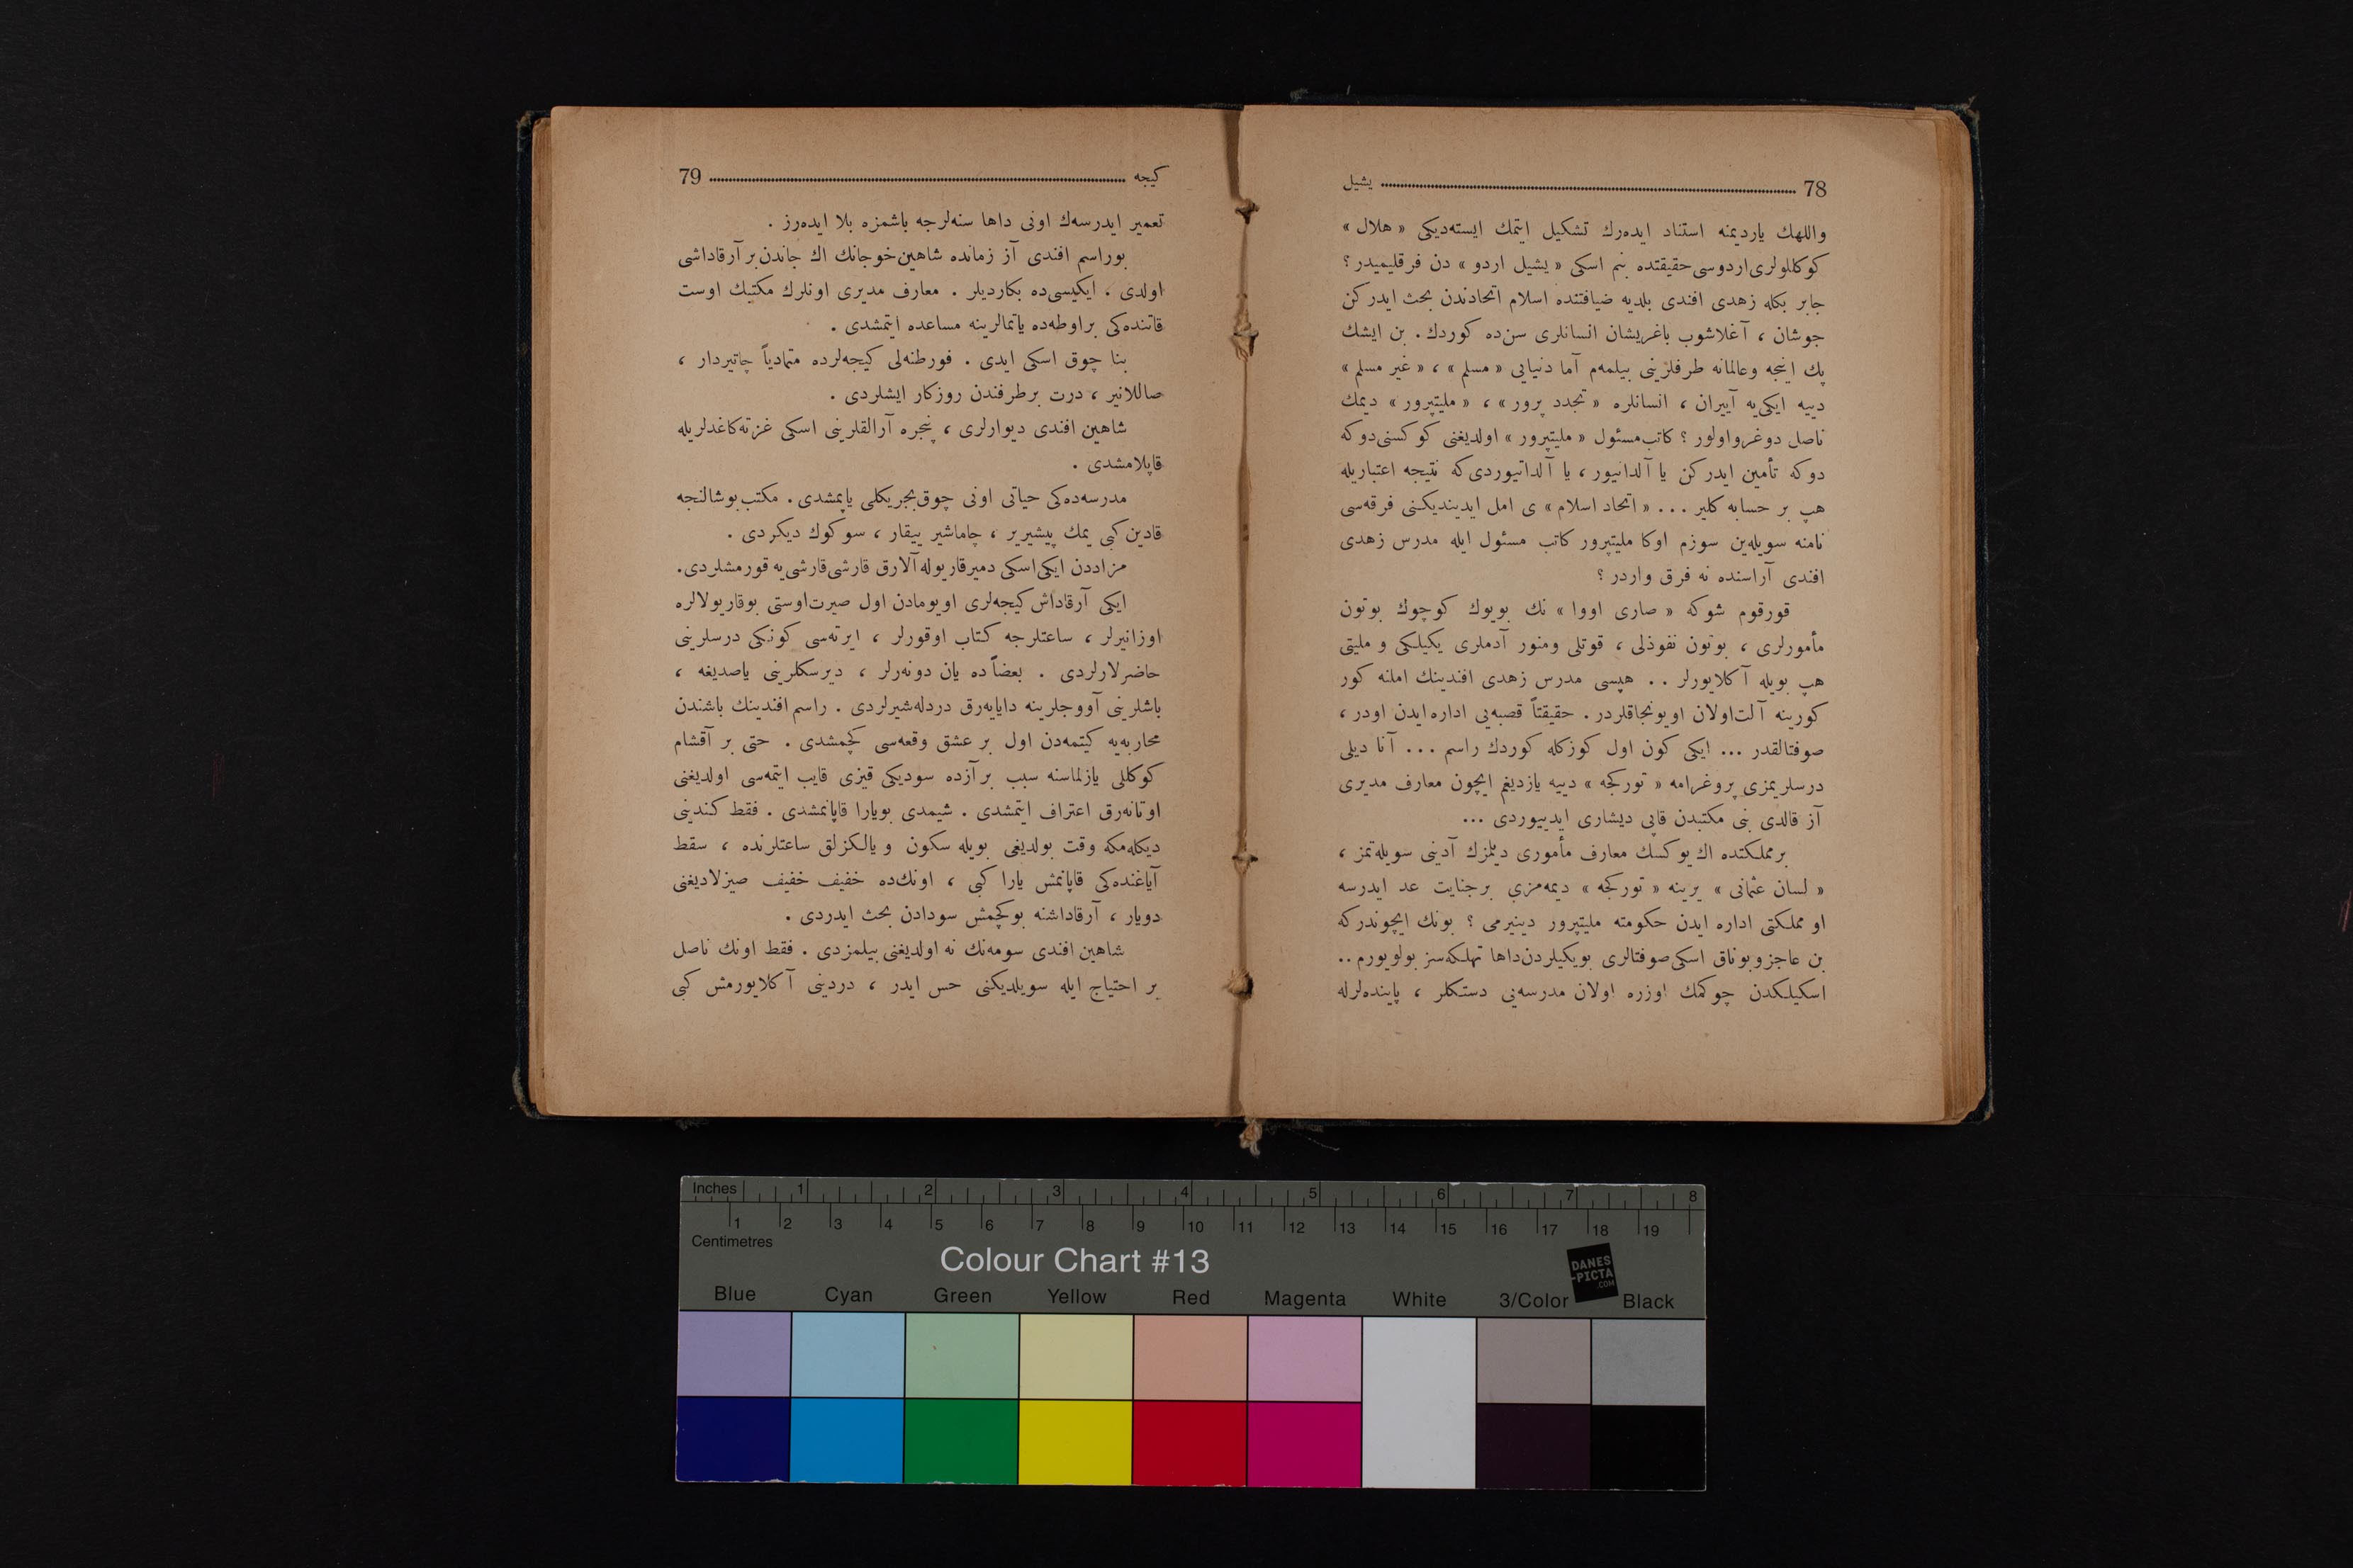 78 يشيل
واللهك يارديمنه استناد ايده‌رك تشكيل ايتمك ايسته‌ديكى « هلال »
كوكللولرى اردوسى حقيقتده بنم اسكى « يشيل اردو » دن فرقليميدر ؟
جابر بكله زهدى افندى بلديه ضيافتنده اسلام اتحادندن بحث ايدركن
جوشان ، آغلاشوب باغريشان انسانلرى سن‌ده كوردك . بن ايشك
پك اينجه وعالمانه طرفلرينى بيلمه‌م آما دنيايى « مسلم » ، « غير مسلم »
دييه ايكى‌يه آييران ، انسانلره « تجدد پرور » ، « مليتپرور » ديمك
ناصل دوغرو اولور ؟ كاتب مسئول « مليتپرور » اولديغنى كوكسنى دوكه
دوكه تأمين ايدركن يا آلدانيور ، يا آلداتيوردى كه نتيجه اعتباريله
هپ بر حسابه كلير ... « اتحاد اسلام » ى امل ايدينديكنى فرقه‌سى
نامنه سويله‌ين سوزم اوكا مليتپرور كاتب مسئول ايله مدرس زهدى
افندى آراسنده نه فرق واردر ؟
قورقوم شوكه « صارى اووا » نك بويوك كوچوك بوتون
مأمورلرى ، بوتون نفوذلى ، قوتلى ومنور آدملرى يكيلكى و مليتى
هپ بويله آكلايورلر .. هپسى مدرس زهدى افندينك املنه كور
كورينه آلت اولان اويونجاقلردر . حقيقتاً قصبه‌يى اداره ايدن اودر ،
صوفتالقدر ... ايكى كون اول كوزكله كوردك راسم ... آنا ديلى
درسلريمزى پروغرامه « توركجه » دييه يازديغم ايچون معارف مديرى
آز قالدى بنى مكتبدن قاپى ديشارى ايدييوردى ...
بر مملكتده اك يوكسك معارف مأمورى ديلمزك آدينى سويله‌تمز ،
« لسان عثمانى » يرينه « توركجه » ديمه‌مزى بر جنايت عد ايدرسه
او مملكتى اداره ايدن حكومته مليتپرور دينيرمى ؟ بونك ايچوندركه
بن عاجز و بوناق اسكى صوفتالرى بويكيلردن داها تهلكه‌سز بولويورم ..
اسكيلكدن چوكمك اوزره اولان مدرسه‌يى دستكلر ، پاينده‌لرله
كيجه 79
تعمير ايدرسه‌ك اونى داها سنه‌لرجه باشمزه بلا ايده‌رز .
بوراسم افندى آز زمانده شاهين خوجانك اك جاندن بر آرقاداشى
اولدى . ايكيسى‌ده بكارديلر . معارف مديرى اونلرك مكتبك اوست
قاتنده‌كى بر اوطه‌ده ياتمالرينه مساعده ايتمشدى .
بنا چوق اسكى ايدى . فورطنه‌لى كيجه‌لرده متمادياً چاتيردار ،
صاللانير ، درت بر طرفندن روزكار ايشلردى .
شاهين افندى ديوارلرى ، پنجره آرالقلرينى اسكى غزته كاغدلريله
قاپلامشدى .
مدرسه‌ده‌كى حياتى اونى چوق بجريكلى ياپمشدى . مكتب بوشالنجه
قادين كبى يمك پيشيرير ، چاماشير ييقار ، سوكوك ديكردى .
مزاددن ايكى اسكى دميرقاريوله آلارق قارشى قارشى‌يه قورمشلردى.
ايكى آرقاداش كيجه‌لرى اويومادن اول صيرت اوستى بوقاريولالره
اوزانيرلر ، ساعتلرجه كتاب اوقورلر ، ايرته‌سى كونكى درسلرينى
حاضرلارلردى . بعضاً ده يان دونه‌رلر ، ديرسكلرينى ياصديغه ،
باشلرينى آووجلرينه داياپه‌رق دردله‌شيرلردى . راسم افندينك باشندن
محاربه‌يه كيتمه‌دن اول بر عشق وقعه‌سى كچمشدى . حتى بر آقشام
كوكللى يازلماسنه سبب بر آزده سوديكى قيزى قايب ايتمه‌سى اولديغنى
اوتانه‌رق اعتراف ايتمشدى . شيمدى بويارا قاپانمشدى . فقط كندينى
ديكله‌مكه وقت بولديغى بويله سكون و يالكزلق ساعتلرنده ، سقط
آياغنده‌كى قاپانمش يارا كبى ، اونك‌ده خفيف خفيف صيزلاديغنى
دويار ، آرقاداشنه بوكچمش سودادن بحث ايدردى .
شاهين افندى سومه‌نك نه اولديغنى بيلمزدى . فقط اونك ناصل
بر احتياج ايله سويلديكنى حس ايدر ، دردينى آكلايورمش كبى
Inches 1 2 3 4 5 6 7 8
1 2 3 4 5 6 7 8 9 10 11 12 13 14 15 16 17 18 19
Centimetres
Colour Chart #13
DANES
-PICTA
.COM
Blue Cyan Green Yellow Red Magenta White 3/Color Black